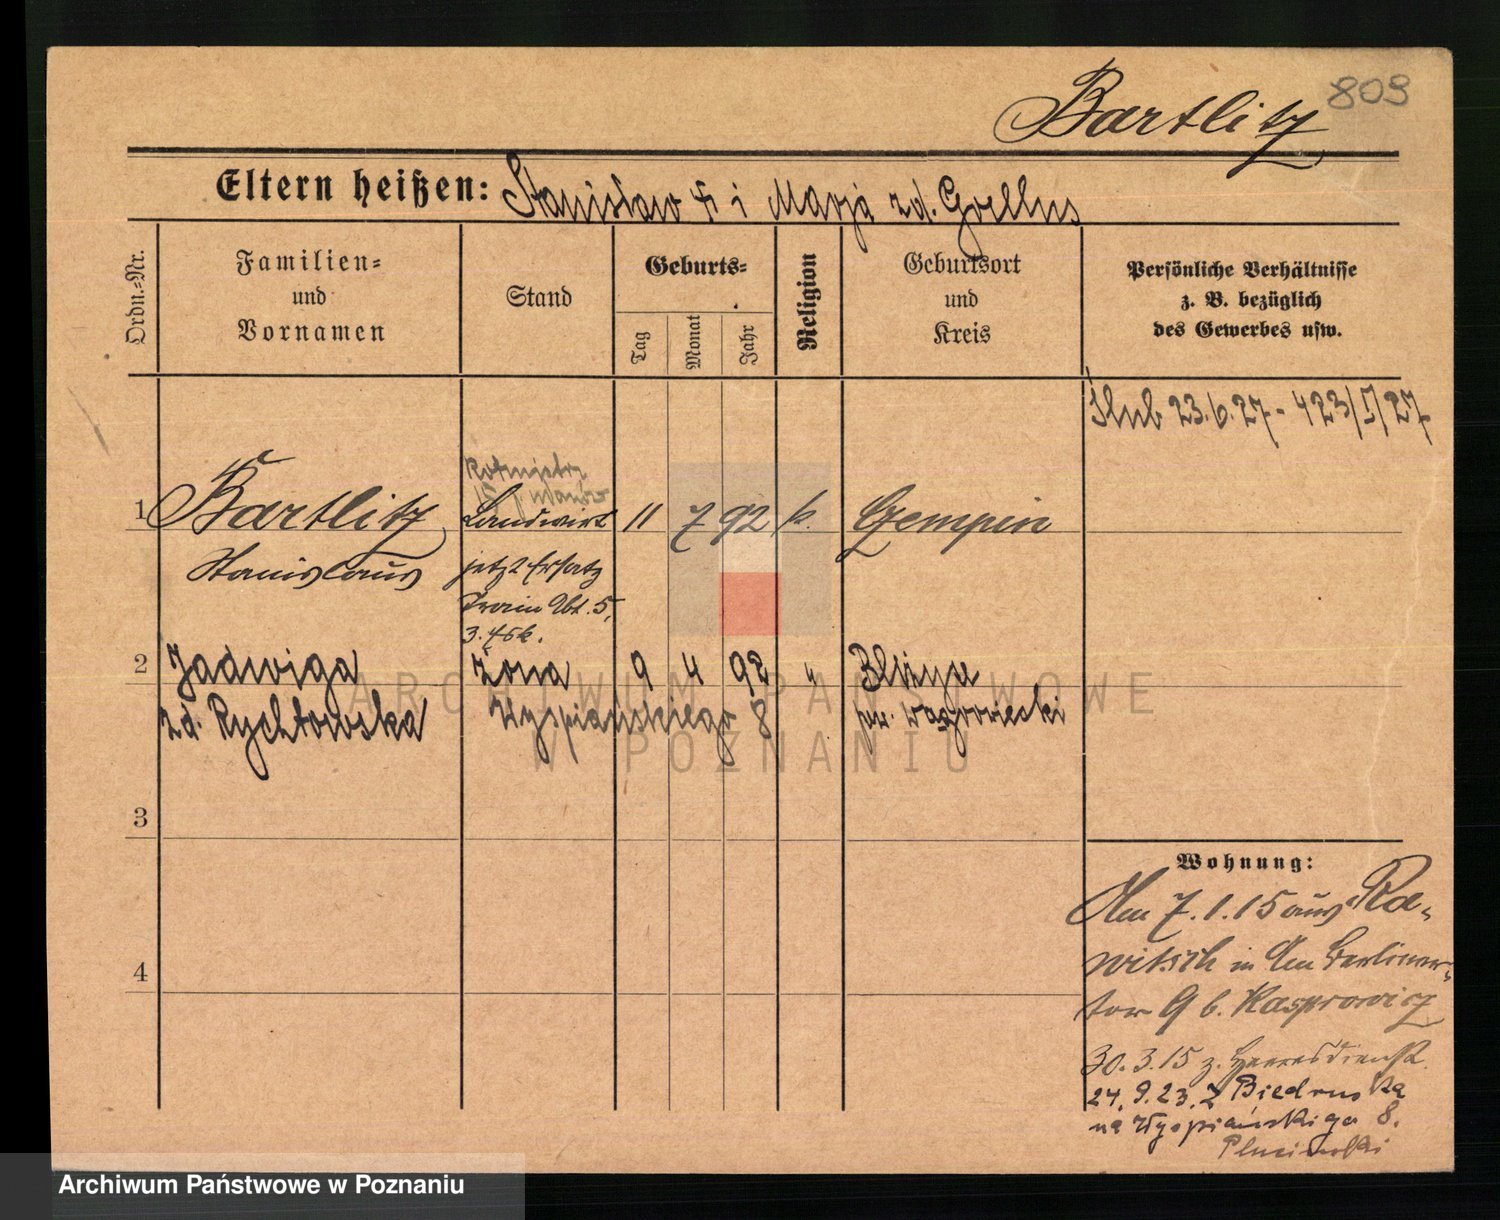 809
Bartlitz
Eltern heißen: Stanisław i Marja zd. Goellus
Ordn.=Nr.
Familien=
und
Vornamen
Stand
Geburts=
Tag
Monat
Jahr
Religion
Geburtsort
und
Kreis
Persönliche Verhältnisse
z. B. bezüglich
des Gewerbes usw.
Ślub 23.6.27 - 423/I/27
rotmistrz
ułanów
1 Bartlitz Landwirt 11 7 92 k. Czempin
Stanislaus jetzt Ersatz
Train Abt. 5,
3. Esk.
2 Jadwiga żona 9 4 92 "
zd. Rychłowska Wyspiańskiego 8 pow. wągrowiecki
3
4
Wohnung:
Am 7.1.15 aus Ra-
witsch in Am Berliner-
tor 9 b. Kasprowicz
30.3.15 z. Heeresdienst
24.9.23 z Biedruska
na Wyspiańskiego 8.
ARCHIWUM PAŃSTWOWE
W POZNANIU
Archiwum Państwowe w Poznaniu